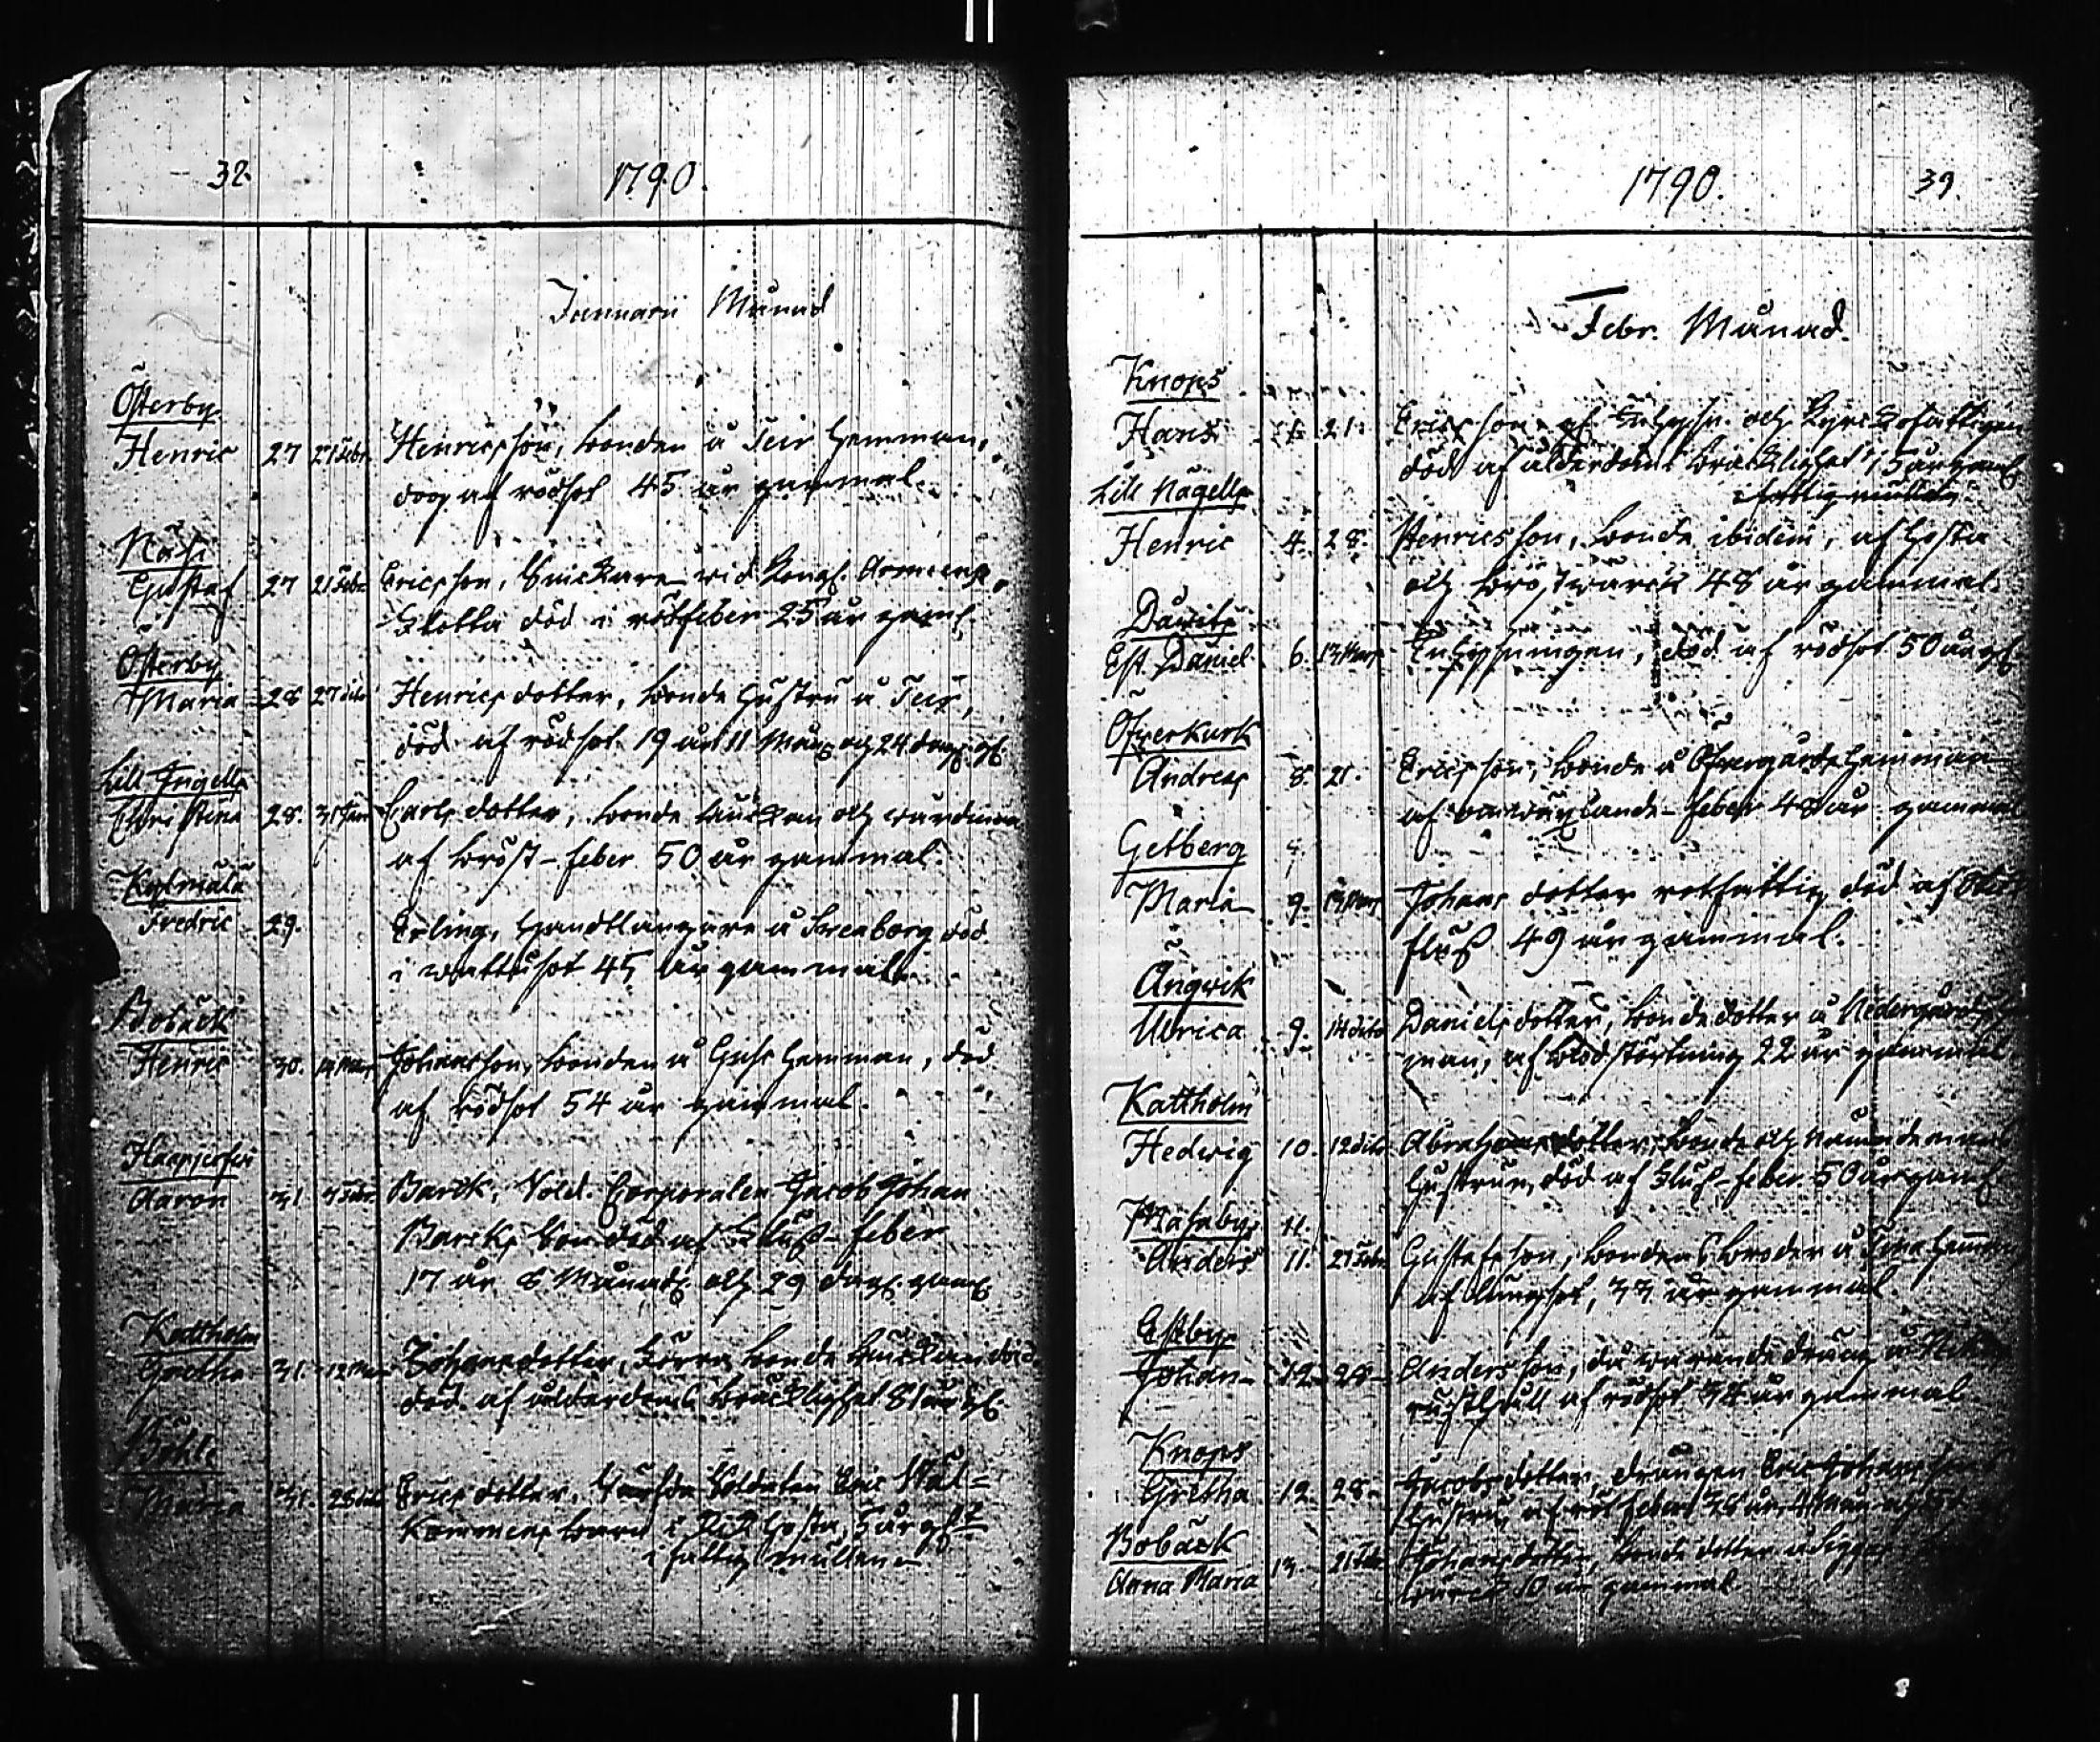 32.
1790.
Januarii Månad
Österby
Henric 27 27 Febr. Henricsson, bonden å Teir hemman,
dog af rödsot 45 år gammal.
Näse
Gustaf 27 21 Febr. Ericsson, Snickare wid Kongl. Armeens
Flotta död i rötfeber 25 år gaml.
Österby
Maria 28 27 dito Henrics dotter, bonde hustru å Teir,
död af rödsot 19 år 11 Mån och 24 dag. gl.
Lill Ingells
Christina 28. 31 Jan Carls dotter, bonde enckan och
af bröst-feber 50 år gammal.
Kylmälä
Fredric 29. Erling, handtlangare å Sveaborg död
i wattusot 45 år gammal.
Bobäck
Henric 30. 14 Mars Johansson, bonden å Guss hemman, död
af rödsot 54 år gammal.
Haapjerfwi
Aaron 31. Febr. Barck, Vold. Corporalen Jacob Johan
Barcks son död af Fluss-feber
17 år 8 Månad. och 29 dag. gaml.
Kattholm
Gretha 31. 12 Mars Johansdotter, förra bonde enckan
död af ålderdoms bräcklighet 81 år gl.
Böhle
Maria 31. 28 Erics dotter, Soldaten Eric Wäl=
kommens barn i hosta, 5 år gl.
i fattig mullen
1790.
39.
Febr. Månad.
Knops
Hans 21. Ericsson, af och Kyrckofattigen
död af ålderdoms bräcklighet 75 år gaml.
i fattig mullen
Lill Nägels
Henric 4. 28. Henricsson, bonde ibidem, af hosta
och bröstwärck 48 år gammal.
Davits
Est. Daniel 6. 13 Mars Inhysningen, död af rödsot 50 år gl.
Öfwerkurk
Andreas 8. 21. Ericsson, bonde å Öfwergårds hemman
af feber 48 år gammal
Getberg
Maria 9. Mars Johans dotter rotfattig död af
fluss 49 år gammal.
Ängwik
Ulrica 9. 14 dito Daniels dotter, bonde dotter å Nedergårds
man, af blodstörtning 22 år gammal
Kattholm
Hedwig 10. 12 dito Abrahamsdotter, bonde och nämndemans
hustrun, död af Fluss-feber 50 år gaml.
Masaby 11.
Anders 11. 21 Febr. Gustafsson, bondens broder å hemman
af lungsot, 33 år gammal.
Estby
Johan 12. 28. Andersson, då warande dräng å
rusthåll af rödsot år gammal.
Knops
Gretha 12. 28. Jacobsdotter, drängen Eric Johanssons
hustru, af rötfeber 38 år 4 mån
Bobäck
Anna Maria 13. 21 Febr. Johansdotter, bonde dotter å Sigges
10 år gammal